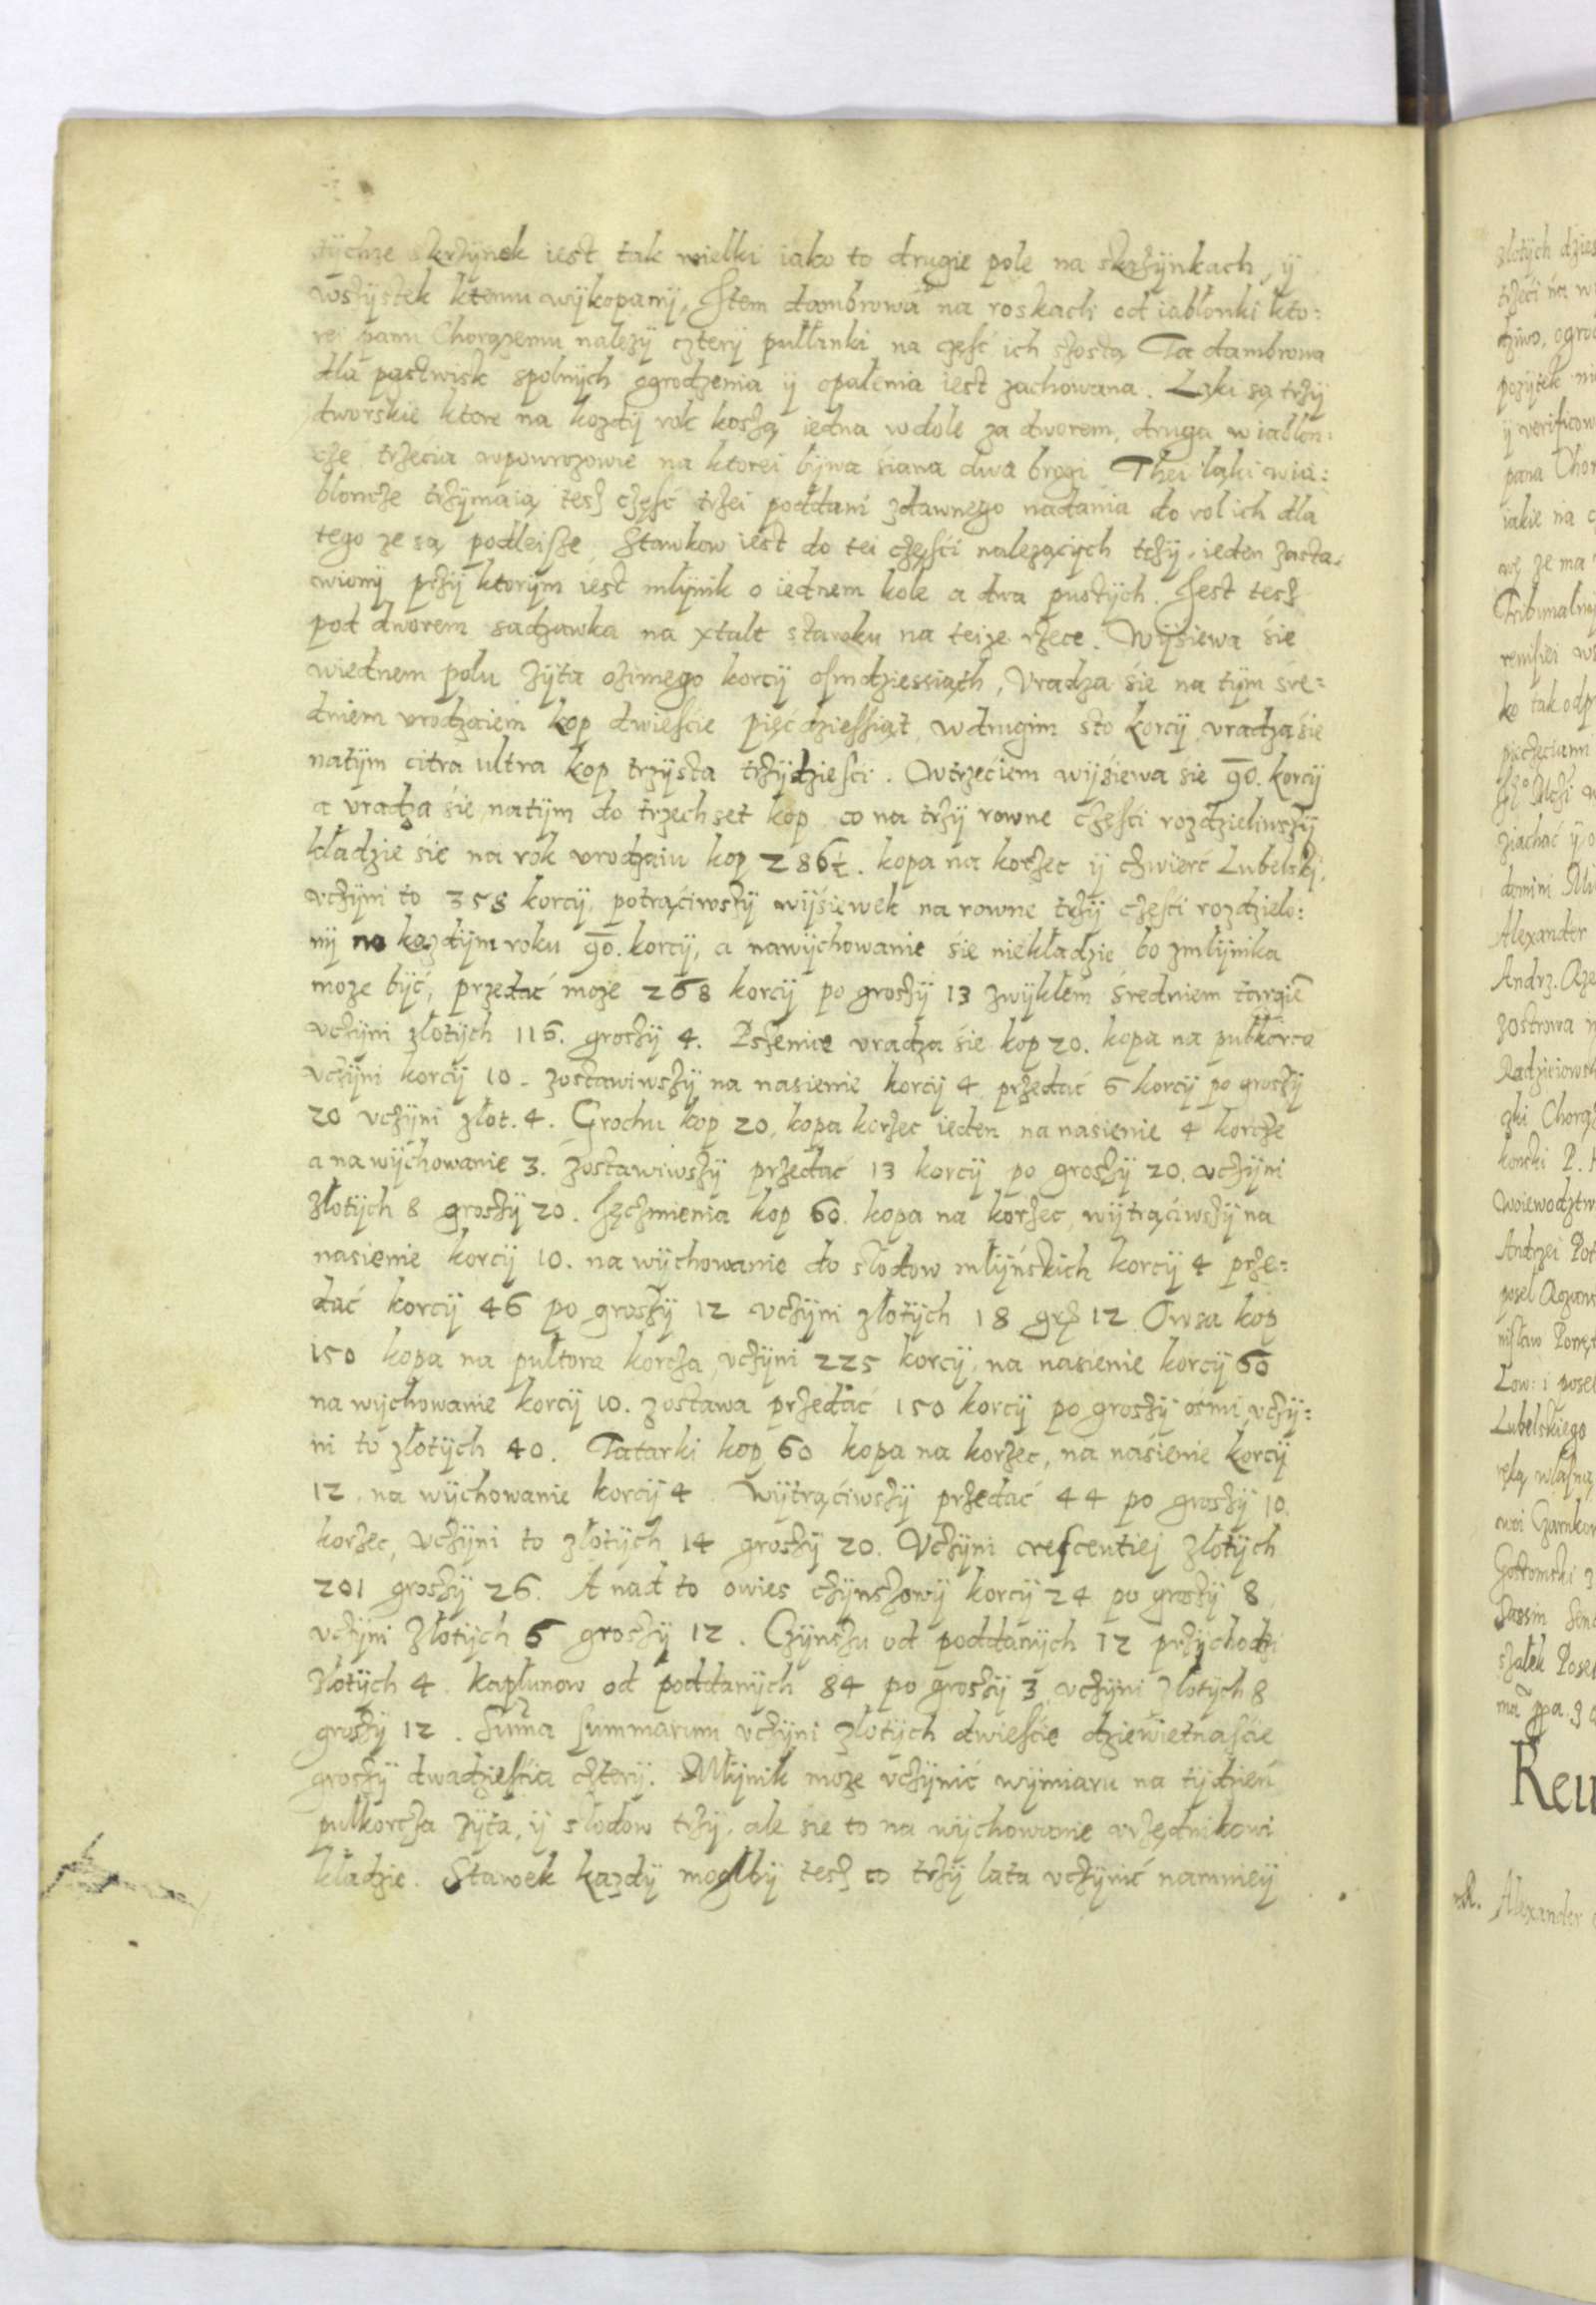 tychze skrzynek iest tak wielki iako to drugie pole na skrzynkach, ÿ
wszÿstek ktemu wÿkopanÿ, Item dambrowa na roskach od iablonki kto:
rei panu Chorązemu nalezÿ czterÿ pułłanki na częsć ich szosta Ta dambrowa
dla pastwisk spolnÿch ogrodzenia ÿ opalenia iest zachowana. Ląki są trzÿ
dworskie ktore na kozdÿ rok koszą iedna wdole za dworem, druga w iablon:
cze trzecia wpowrozowie na ktorei bÿwa siana dwa brogi Thei ląki wia:
bloncze trzÿmaią tesz częsć trzei poddani zdawnego nadania do rol ich dla
tego ze są podleisze, Stawkow iest do tei częsci nalezącÿch trzÿ, ieden zasta.
wionÿ przÿ ktorÿm iest młÿnik o iednem kole a dwa pustÿch. Jest tesz
pod dworem sadzawka na xtalt stawku na teize rzece. Wÿsiewa sie
wiednem polu zÿta ozimego korcÿ osmdziessiąth, Vradza sie na tÿm sre:
dniem vrodzaiem kop dwiescie pięćdziessiąt, wdrugim sto korcÿ vradza sie
natÿm citra ultra kop trzÿsta trzÿdziesci. Wtrzeciem wÿsiewa sie 90. korcÿ
a vradza sie natÿm do trzech set kop co na trzÿ rowne częsci rozdzieliwszÿ
kładzie się na rok vrodzaiu kop 286½. kopa na korzec ÿ cwierć Lubelski,
vczÿni to 358 korcÿ, potrąciwszÿ wÿsiewek na rowne trzÿ częsci rozdzielo:
nÿ na kazdÿm roku 90. korcÿ, a nawÿchowanie sie niekładzie bo zmłÿnka
moze bÿć, przedać moze 268 korcÿ po groszÿ 13 zwÿkłem średniem targiē
vczÿni złotÿch 116. groszÿ 4. Pszenice vradza sie kop 20. kopa na pułkorca
vczÿni korcÿ 10. zostawiwszÿ na nasienie korcÿ 4 przedać 6 korcÿ po groszÿ
20 vczÿni złot. 4. Grochu kop 20, kopa korzec ieden na nasienie 4 korcze
a na wÿchowanie 3. zostawiwszÿ przedać 13 korcÿ po groszÿ 20. vczÿni
złotÿch 8 groszÿ 20. Jęczmienia kop 60. kopa na korzec, wÿtrąciwszÿ na
nasienie korcÿ 10. na wÿchowanie do słodow młÿńskich korcÿ 4 prze:
dać korcÿ 46 po groszÿ 12 vczÿni złotÿch 18 gr 12 Owsa kop
150 kopa na pułtora korcza, vczÿni 225 korcÿ, na nasienie korcÿ 60
na wÿchowanie korcÿ 10. zostawa przedać 150 korcÿ po groszÿ osmi, vczÿ:
ni to złotÿch 40. Tatarki kop 60 kopa na korzec, na nasienie korcÿ
12, na wÿchowanie korcÿ 4. Wÿtrąciwszÿ przedać 44 po groszÿ 10.
korzec, vczÿni to złotÿch 14 groszÿ 20. Vczÿni crescentiej złotÿch
201 groszÿ 26. A nad to owies czÿnszowÿ korcÿ 24 po groszÿ 8
vczÿni złotÿch 6 groszÿ 12. Czÿnszu od poddanÿch 12 przÿchodzi
złotÿch 4. kapłunow od poddanÿch 84 po groszÿ 3 vczÿni złotÿch 8
groszÿ 12. Sum̄a summarum vczÿni złotÿch dwiescie dziewietnascie
groszÿ dwadziescia czterÿ. Młÿnik moze vczÿnić wÿmiaru na tÿdzień
pułkorcza zÿta, ÿ słodow trzÿ, ale sie to na wÿchowanie vrzędnikowi
kładzie. Stawek kazdÿ mogłbÿ tesz co trzÿ lata vczÿnić namnieÿ
złotÿch
Tribunalnÿ
Alexander
Radziciowsk
Andrzei
Lubelskiego
Reu
Alexander